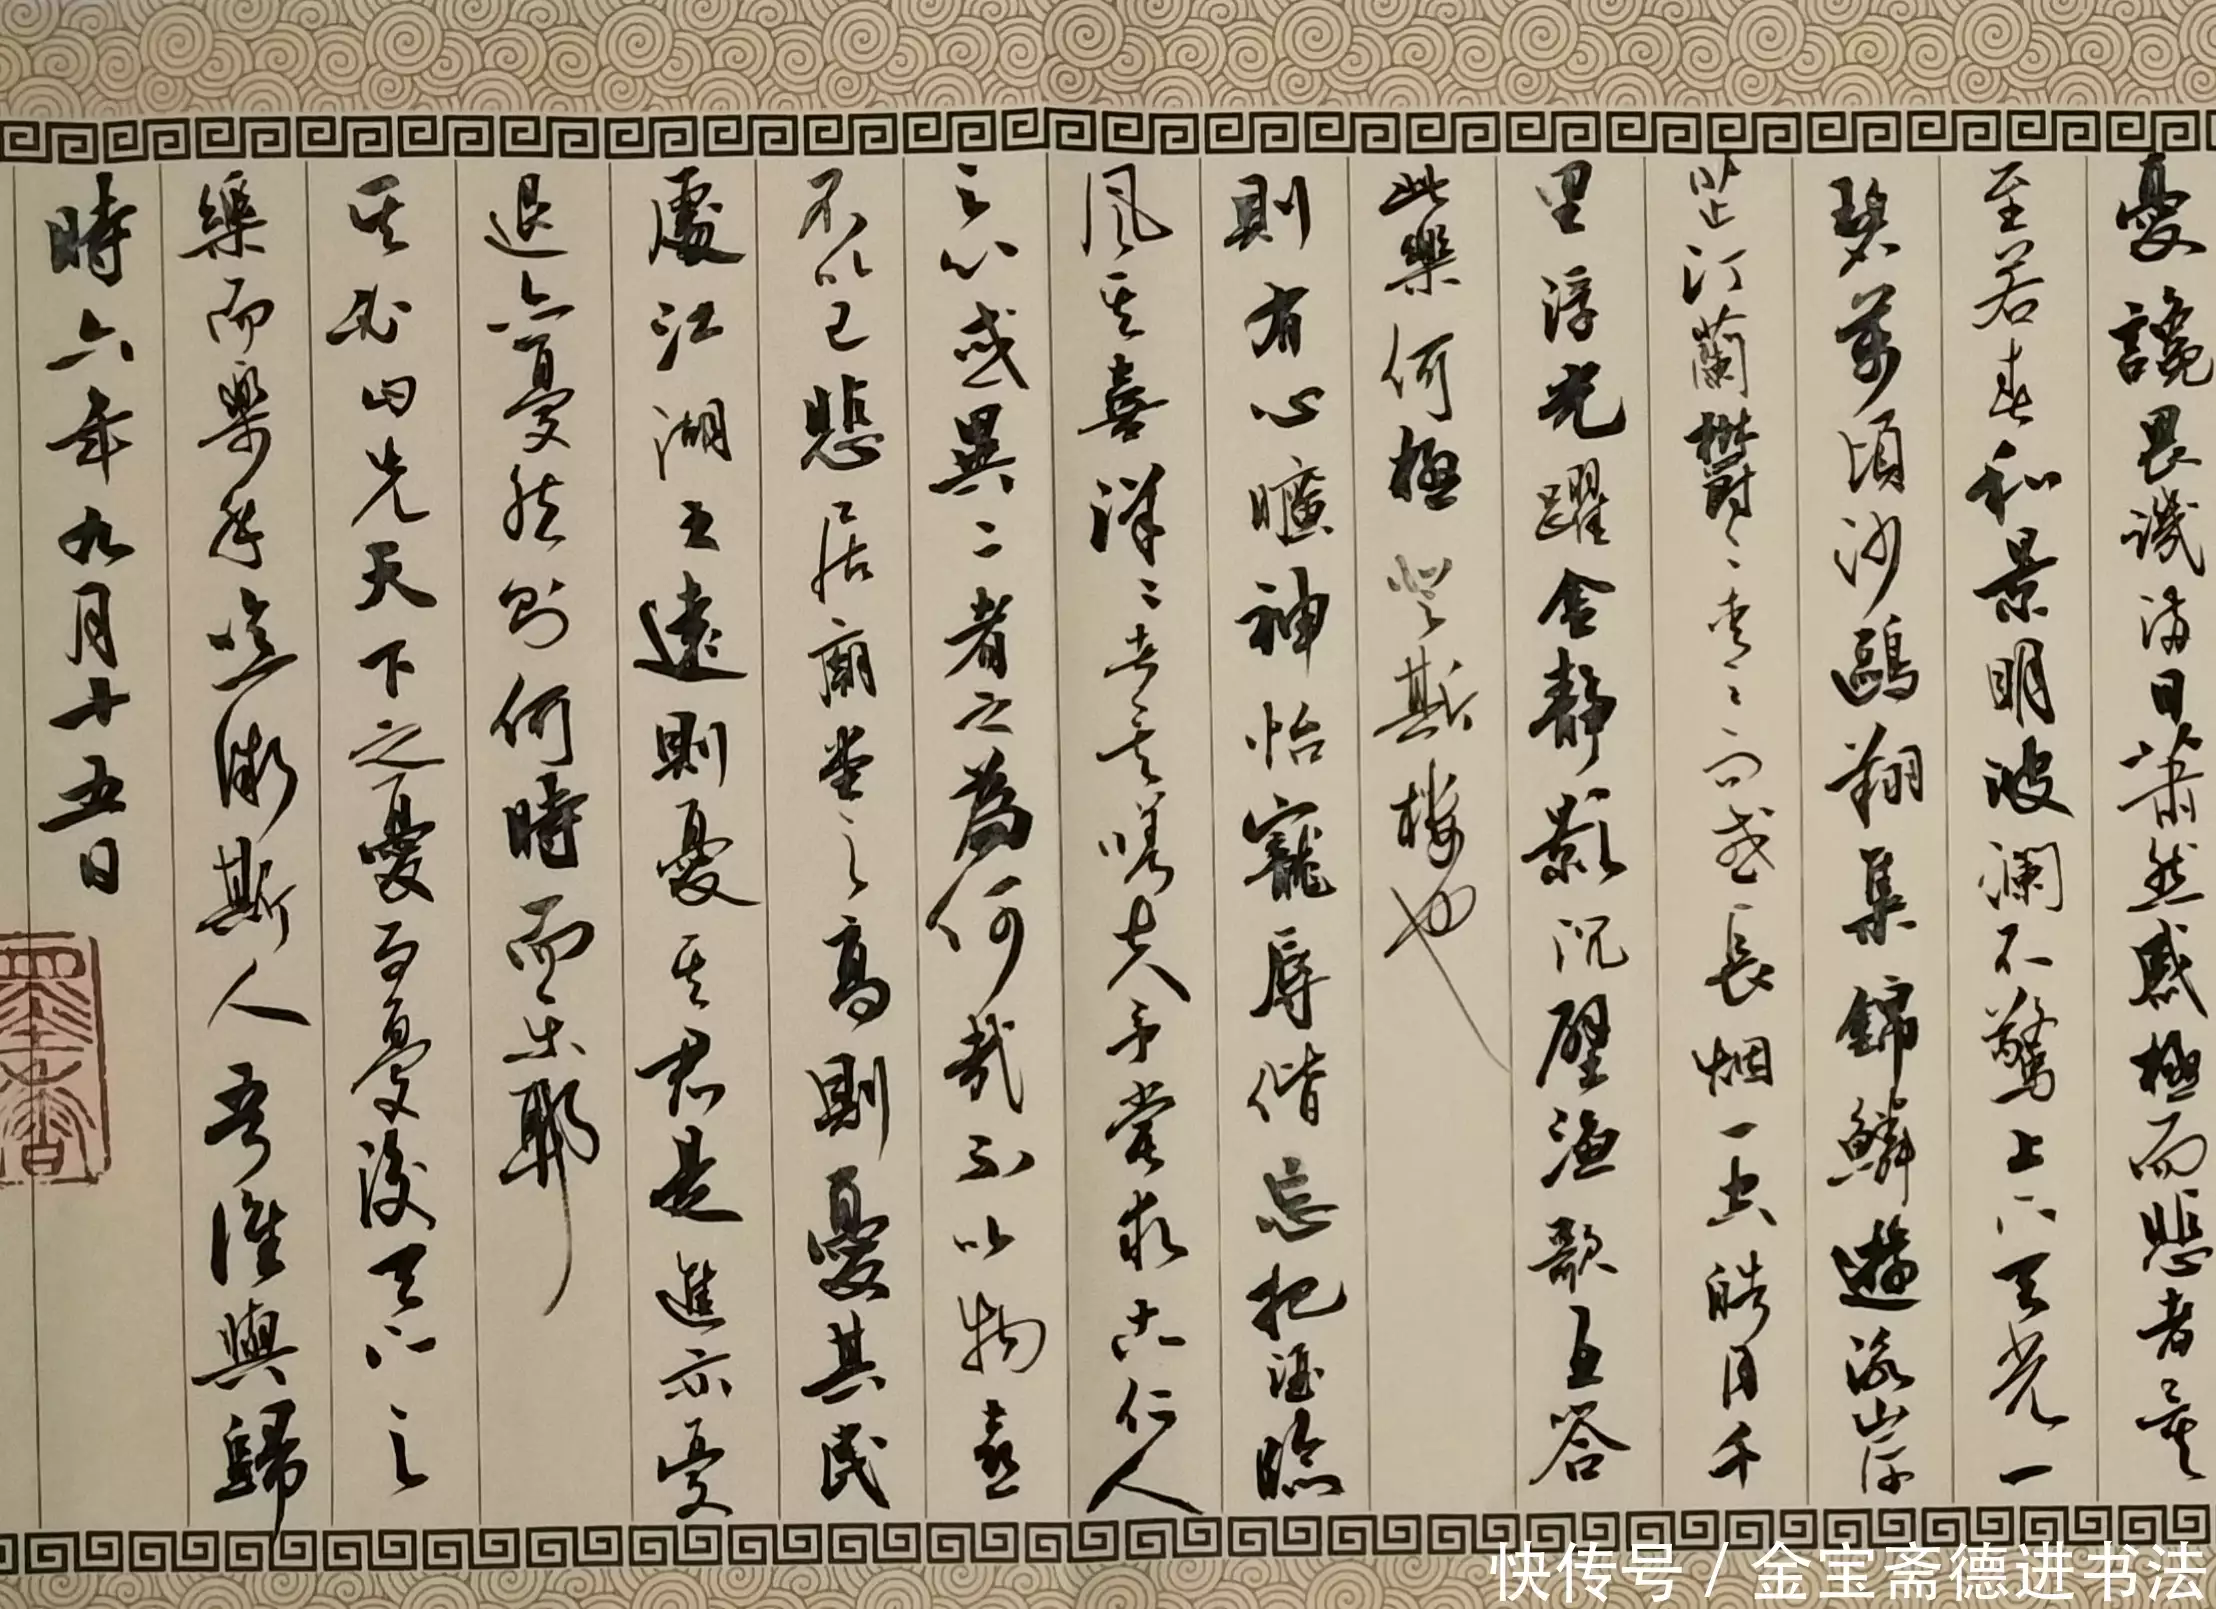 憂讒畏譏滿目蕭然感極而悲者矣
至若春和景明波瀾不驚上下天光一
碧萬頃沙鷗翔集錦鱗遊泳岸
芷汀蘭鬱〻青〻而或長烟一空皓月千
里浮光躍金靜影沉璧漁歌互答
此樂何極登斯樓也
則有心曠神怡寵辱偕忘把酒臨
風其喜洋〻者矣嗟夫予嘗求古仁人
之心或異二者之為何哉不以物喜
不以己悲居廟堂之高則憂其民
處江湖之遠則憂其君是進亦憂
退亦憂然則何時而乐耶
其必曰先天下之憂而憂後天下之
樂而樂乎噫微斯人吾誰與歸
時六年九月十五日
墨香
快传号 / 金宝斋德进书法